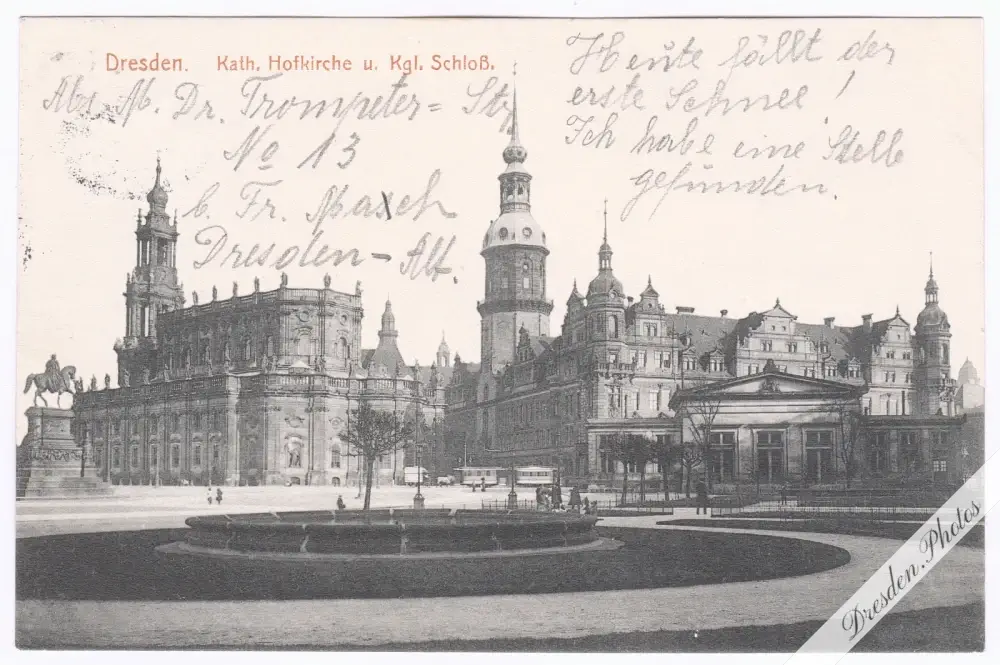 Dresden. Kath. Hofkirche u. Kgl. Schloß.
Abs. M. Dr. Trompeter= Str
No 13
b. Fr. Masch
Dresden - Alt.
Heute fällt der
erste Schnee!
Ich habe eine Stelle
gefunden.
Dresden.Photos